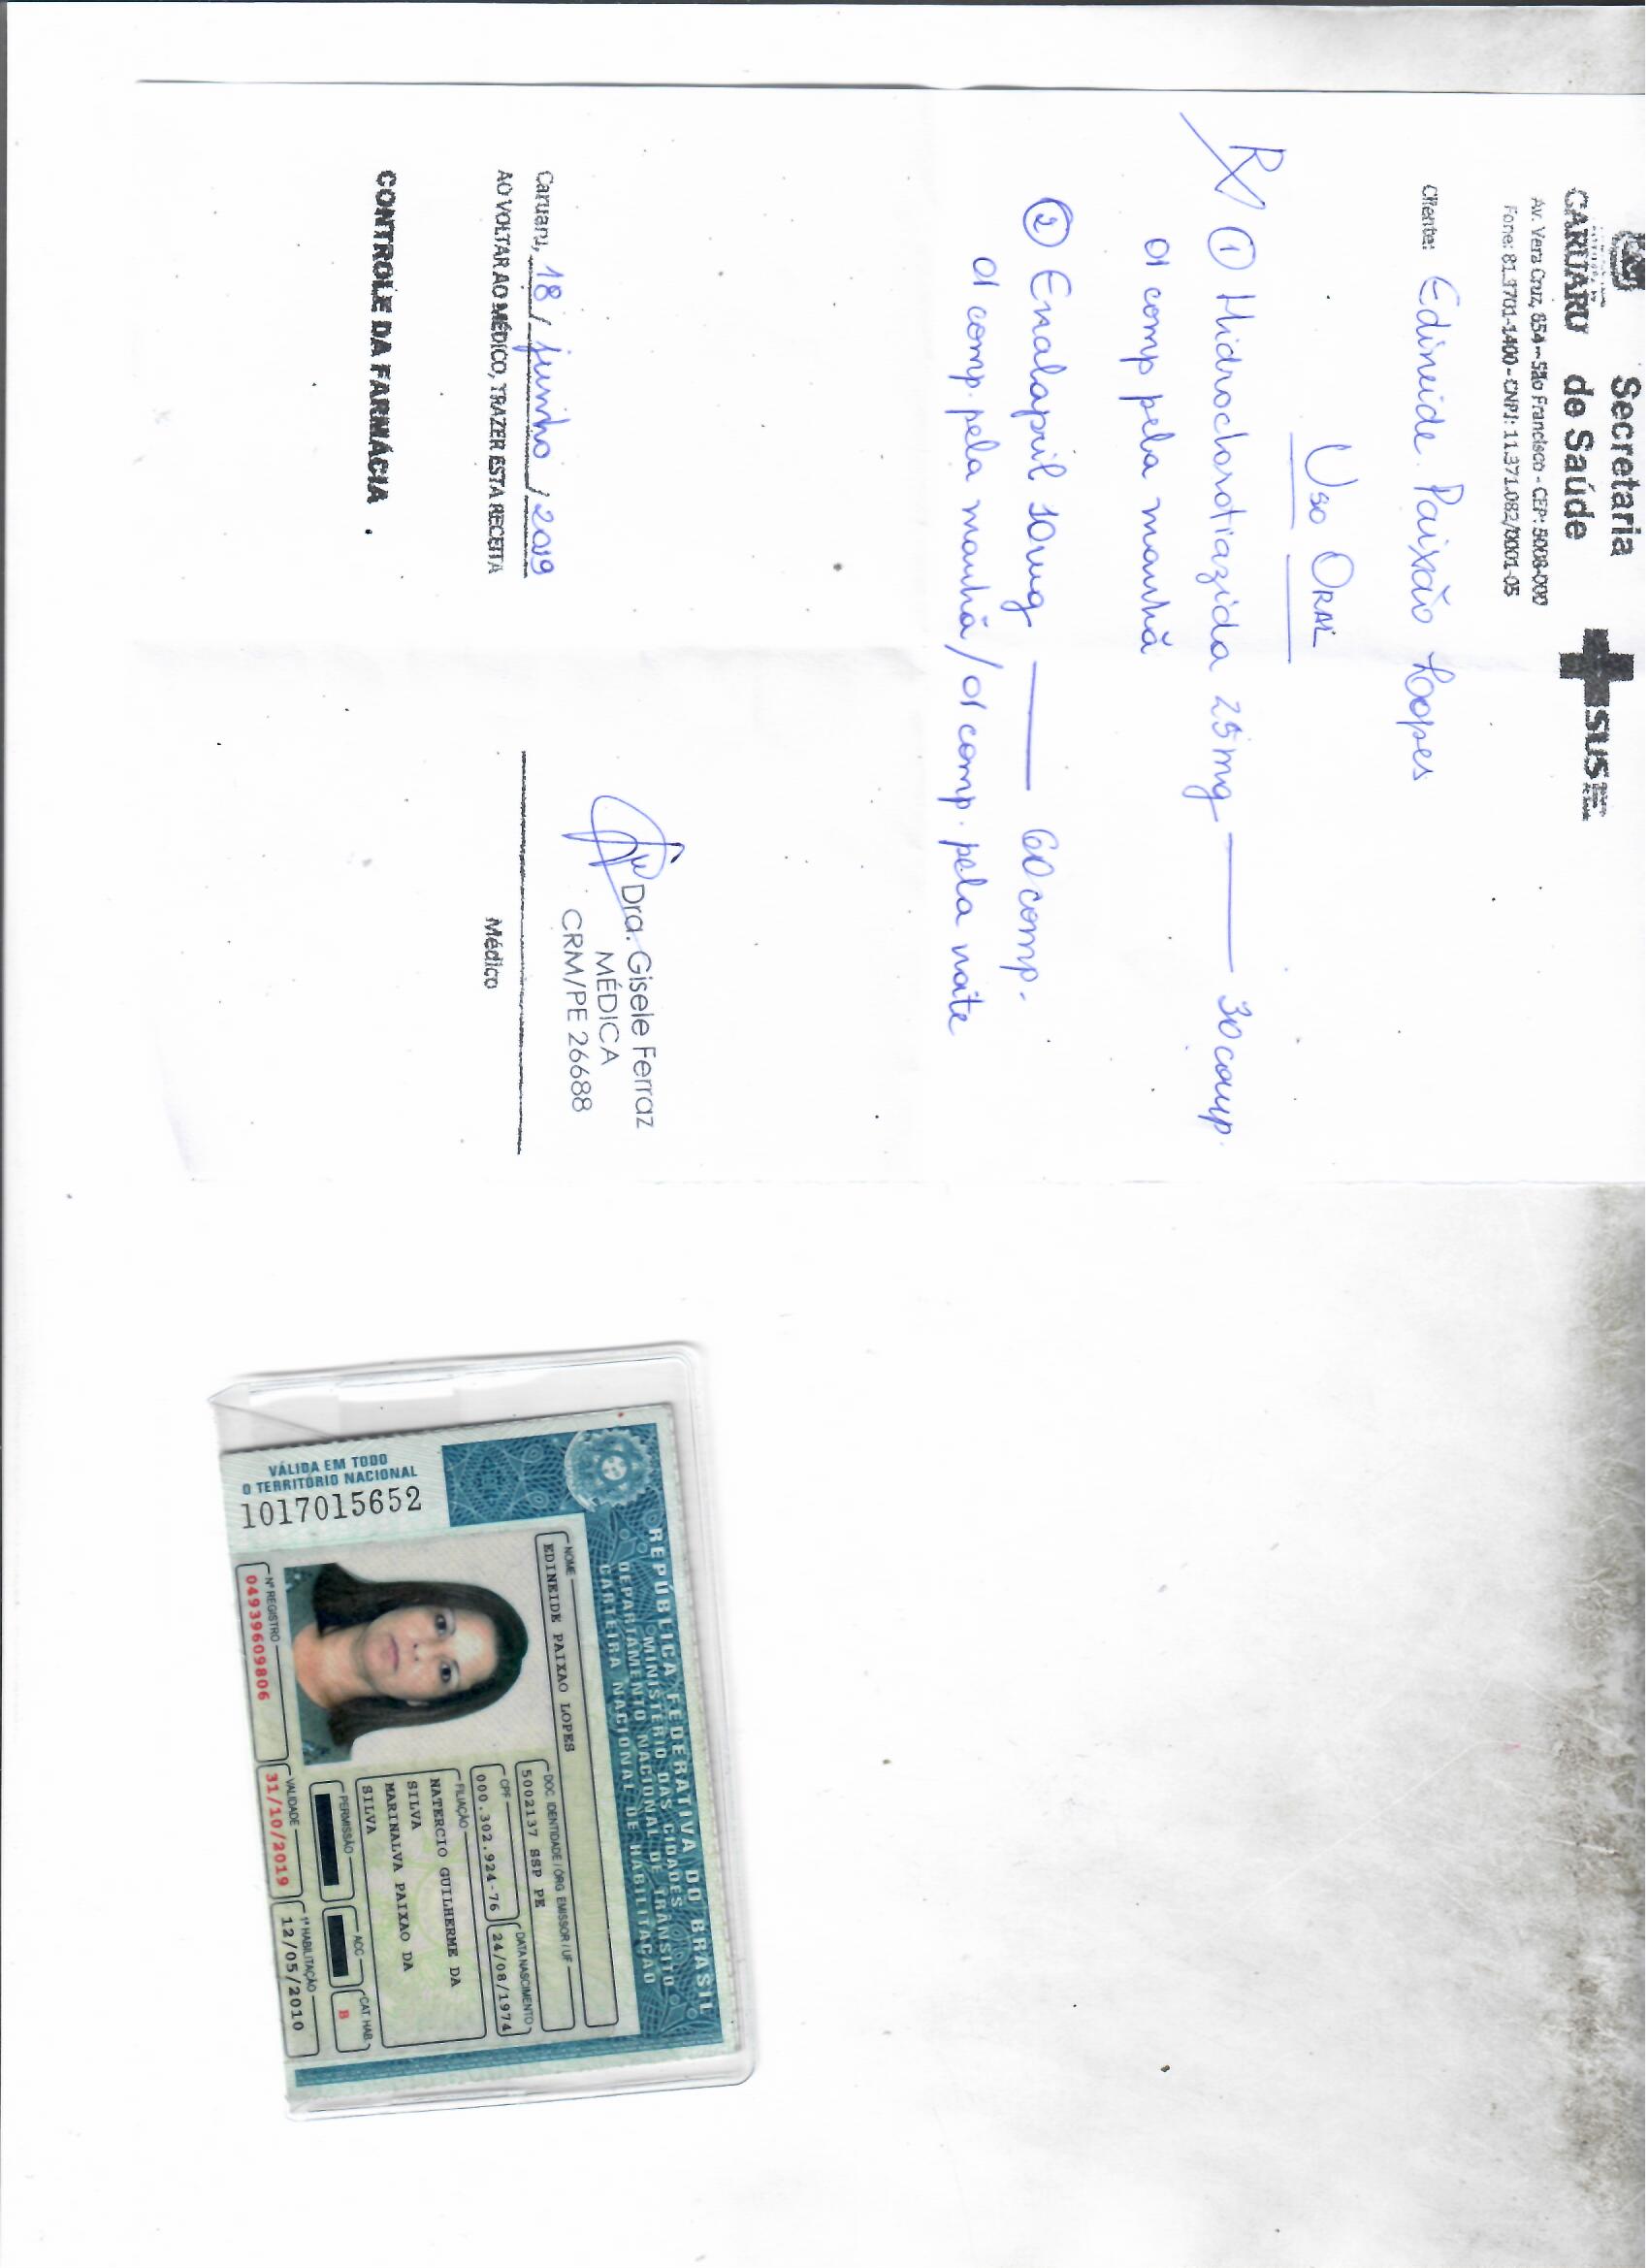 Secretaria
CARUARU de Saúde
SUS
Av. Vera Cruz, 654 - São Francisco - CEP: 5008-000
Fone: 81.3701-1400 - CNPJ: 11.371.082/0001-05
Cliente: Edineide Paixão Lopes
Uso Oral
① Hidroclorotiazida 25mg — 30 comp.
01 comp pela manhã
② Enalapril 10mg — 60 comp.
01 comp. pela manhã / 01 comp. pela noite
Dra. Gisele Ferraz
MÉDICA
CRM/PE 26688
Caruaru, 18 / junho / 2019
AO VOLTAR AO MÉDICO, TRAZER ESTA RECEITA
Médico
CONTROLE DA FARMÁCIA
REPÚBLICA FEDERATIVA DO BRASIL
MINISTÉRIO DAS CIDADES
DEPARTAMENTO NACIONAL DE TRÂNSITO
CARTEIRA NACIONAL DE HABILITAÇÃO
NOME
EDINEIDE PAIXAO LOPES
DOC. IDENTIDADE / ÓRG. EMISSOR / UF
5002137 SSP PE
CPF
000.302.924-76
DATA NASCIMENTO
24/08/1974
FILIAÇÃO
NATERCIO GUILHERME DA
SILVA
MARINALVA PAIXAO DA
SILVA
PERMISSÃO
ACC
CAT. HAB.
B
Nº REGISTRO
04939609806
VALIDADE
31/10/2019
1ª HABILITAÇÃO
12/05/2010
VÁLIDA EM TODO
O TERRITÓRIO NACIONAL
1017015652